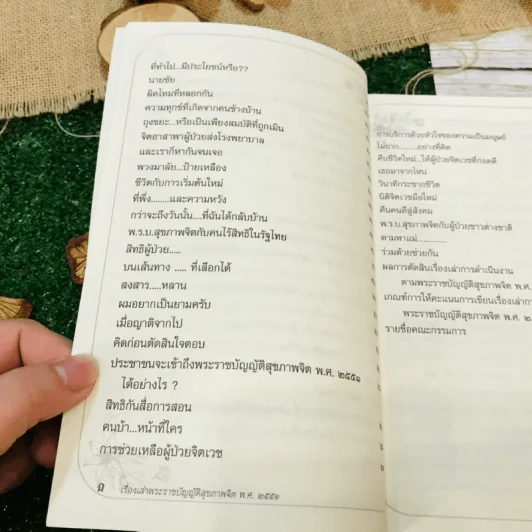 ที่ทำไป...มีประโยชน์หรือ??
นายชัย
ผิดไหมที่หลอกกัน
ความทุกข์ที่เกิดจากคนข้างบ้าน
ถุงขยะ...หรือเป็นเพียงสมบัติที่ถูกเมิน
จิตอาสาพาผู้ป่วยส่งโรงพยาบาล
และเราก็หากันจนเจอ
พวงมาลัย...ป้ายเหลือง
ชีวิตกับการเริ่มต้นใหม่
ที่พึ่ง........และความหวัง
กว่าจะถึงวันนั้น....ที่ฉันได้กลับบ้าน
พ.ร.บ.สุขภาพจิตกับคนไร้สิทธิในรัฐไทย
สิทธิผู้ป่วย.....
บนเส้นทาง ..... ที่เลือกได้
สงสาร.....หลาน
ผมอยากเป็นยามครับ
เมื่อญาติจากไป
คิดก่อนตัดสินใจตอบ
ประชาชนจะเข้าถึงพระราชบัญญัติสุขภาพจิต พ.ศ. ๒๕๕๑
ได้อย่างไร ?
สิทธิกับสื่อการสอน
คนบ้า...หน้าที่ใคร
การช่วยเหลือผู้ป่วยจิตเวช
เรื่องเล่าพระราชบัญญัติสุขภาพจิต พ.ศ. ๒๕๕๑
การบริการด้วยหัวใจของความเป็นมนุษย์
ไม่ยาก.........อย่างที่คิด
คืนชีวิตใหม่...ให้ผู้ป่วยจิตเวชที่ก่อคดี
เธอมาจากไหน
วินาทีกระชากชีวิต
นิติจิตเวชมือใหม่
คืนคนดีสู่สังคม
พ.ร.บ.สุขภาพจิตกับผู้ป่วยชาวต่างชาติ
ตามหาแม่............
ร่วมด้วยช่วยกัน
ผลการตัดสินเรื่องเล่าการดำเนินงาน
ตามพระราชบัญญัติสุขภาพจิต พ.ศ.
เกณฑ์การให้คะแนนการเขียนเรื่องเล่า
พระราชบัญญัติสุขภาพจิต พ.ศ. ๒
รายชื่อคณะกรรมการ